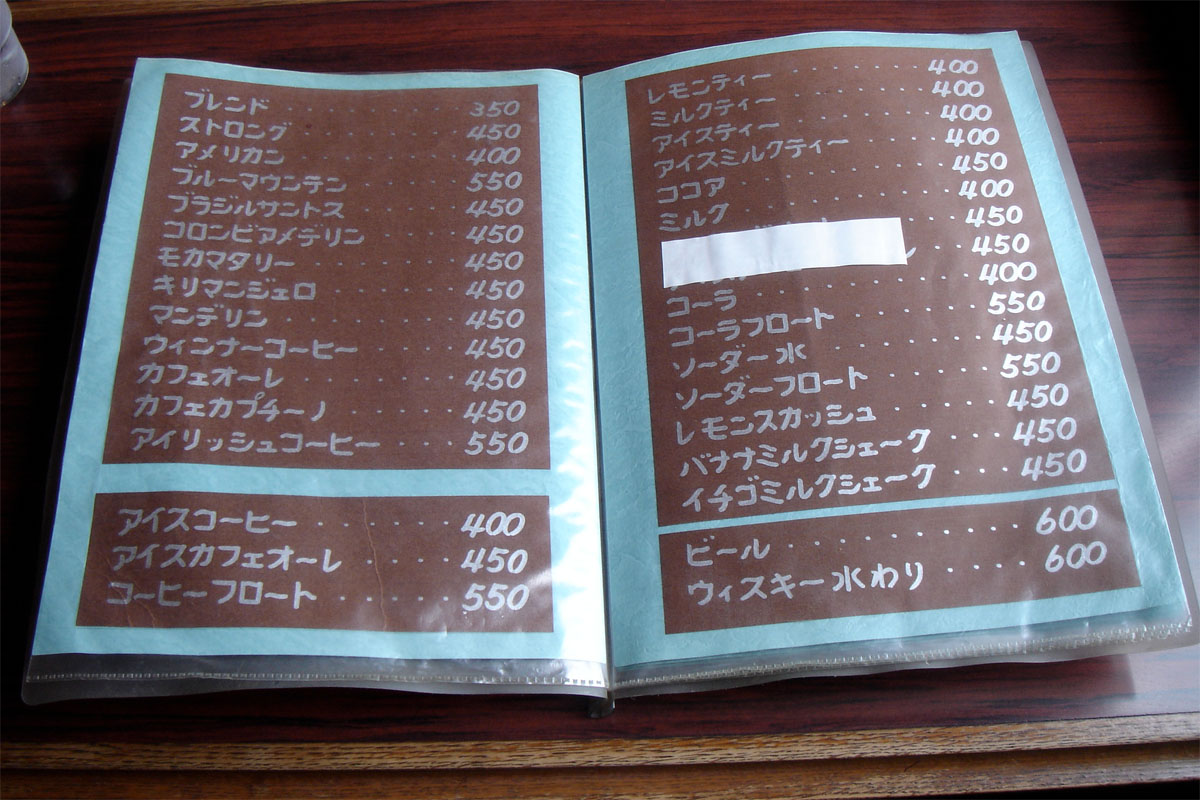 ブレンド 350
ストロング 450
アメリカン 400
ブルーマウンテン 550
ブラジルサントス 450
コロンビアメデリン 450
モカマタリー 450
キリマンジェロ 450
マンデリン 450
ウィンナーコーヒー 450
カフェオーレ 450
カフェカプチーノ 450
アイリッシュコーヒー 550
アイスコーヒー 400
アイスカフェオーレ 450
コーヒーフロート 550
レモンティー 400
ミルクティー 400
アイスティー 400
アイスミルクティー 400
ココア 450
ミルク 400
450
450
コーラ 400
コーラフロート 550
ソーダー水 450
ソーダーフロート 550
レモンスカッシュ 450
バナナミルクシェーク 450
イチゴミルクシェーク 450
ビール 600
ウィスキー水わり 600